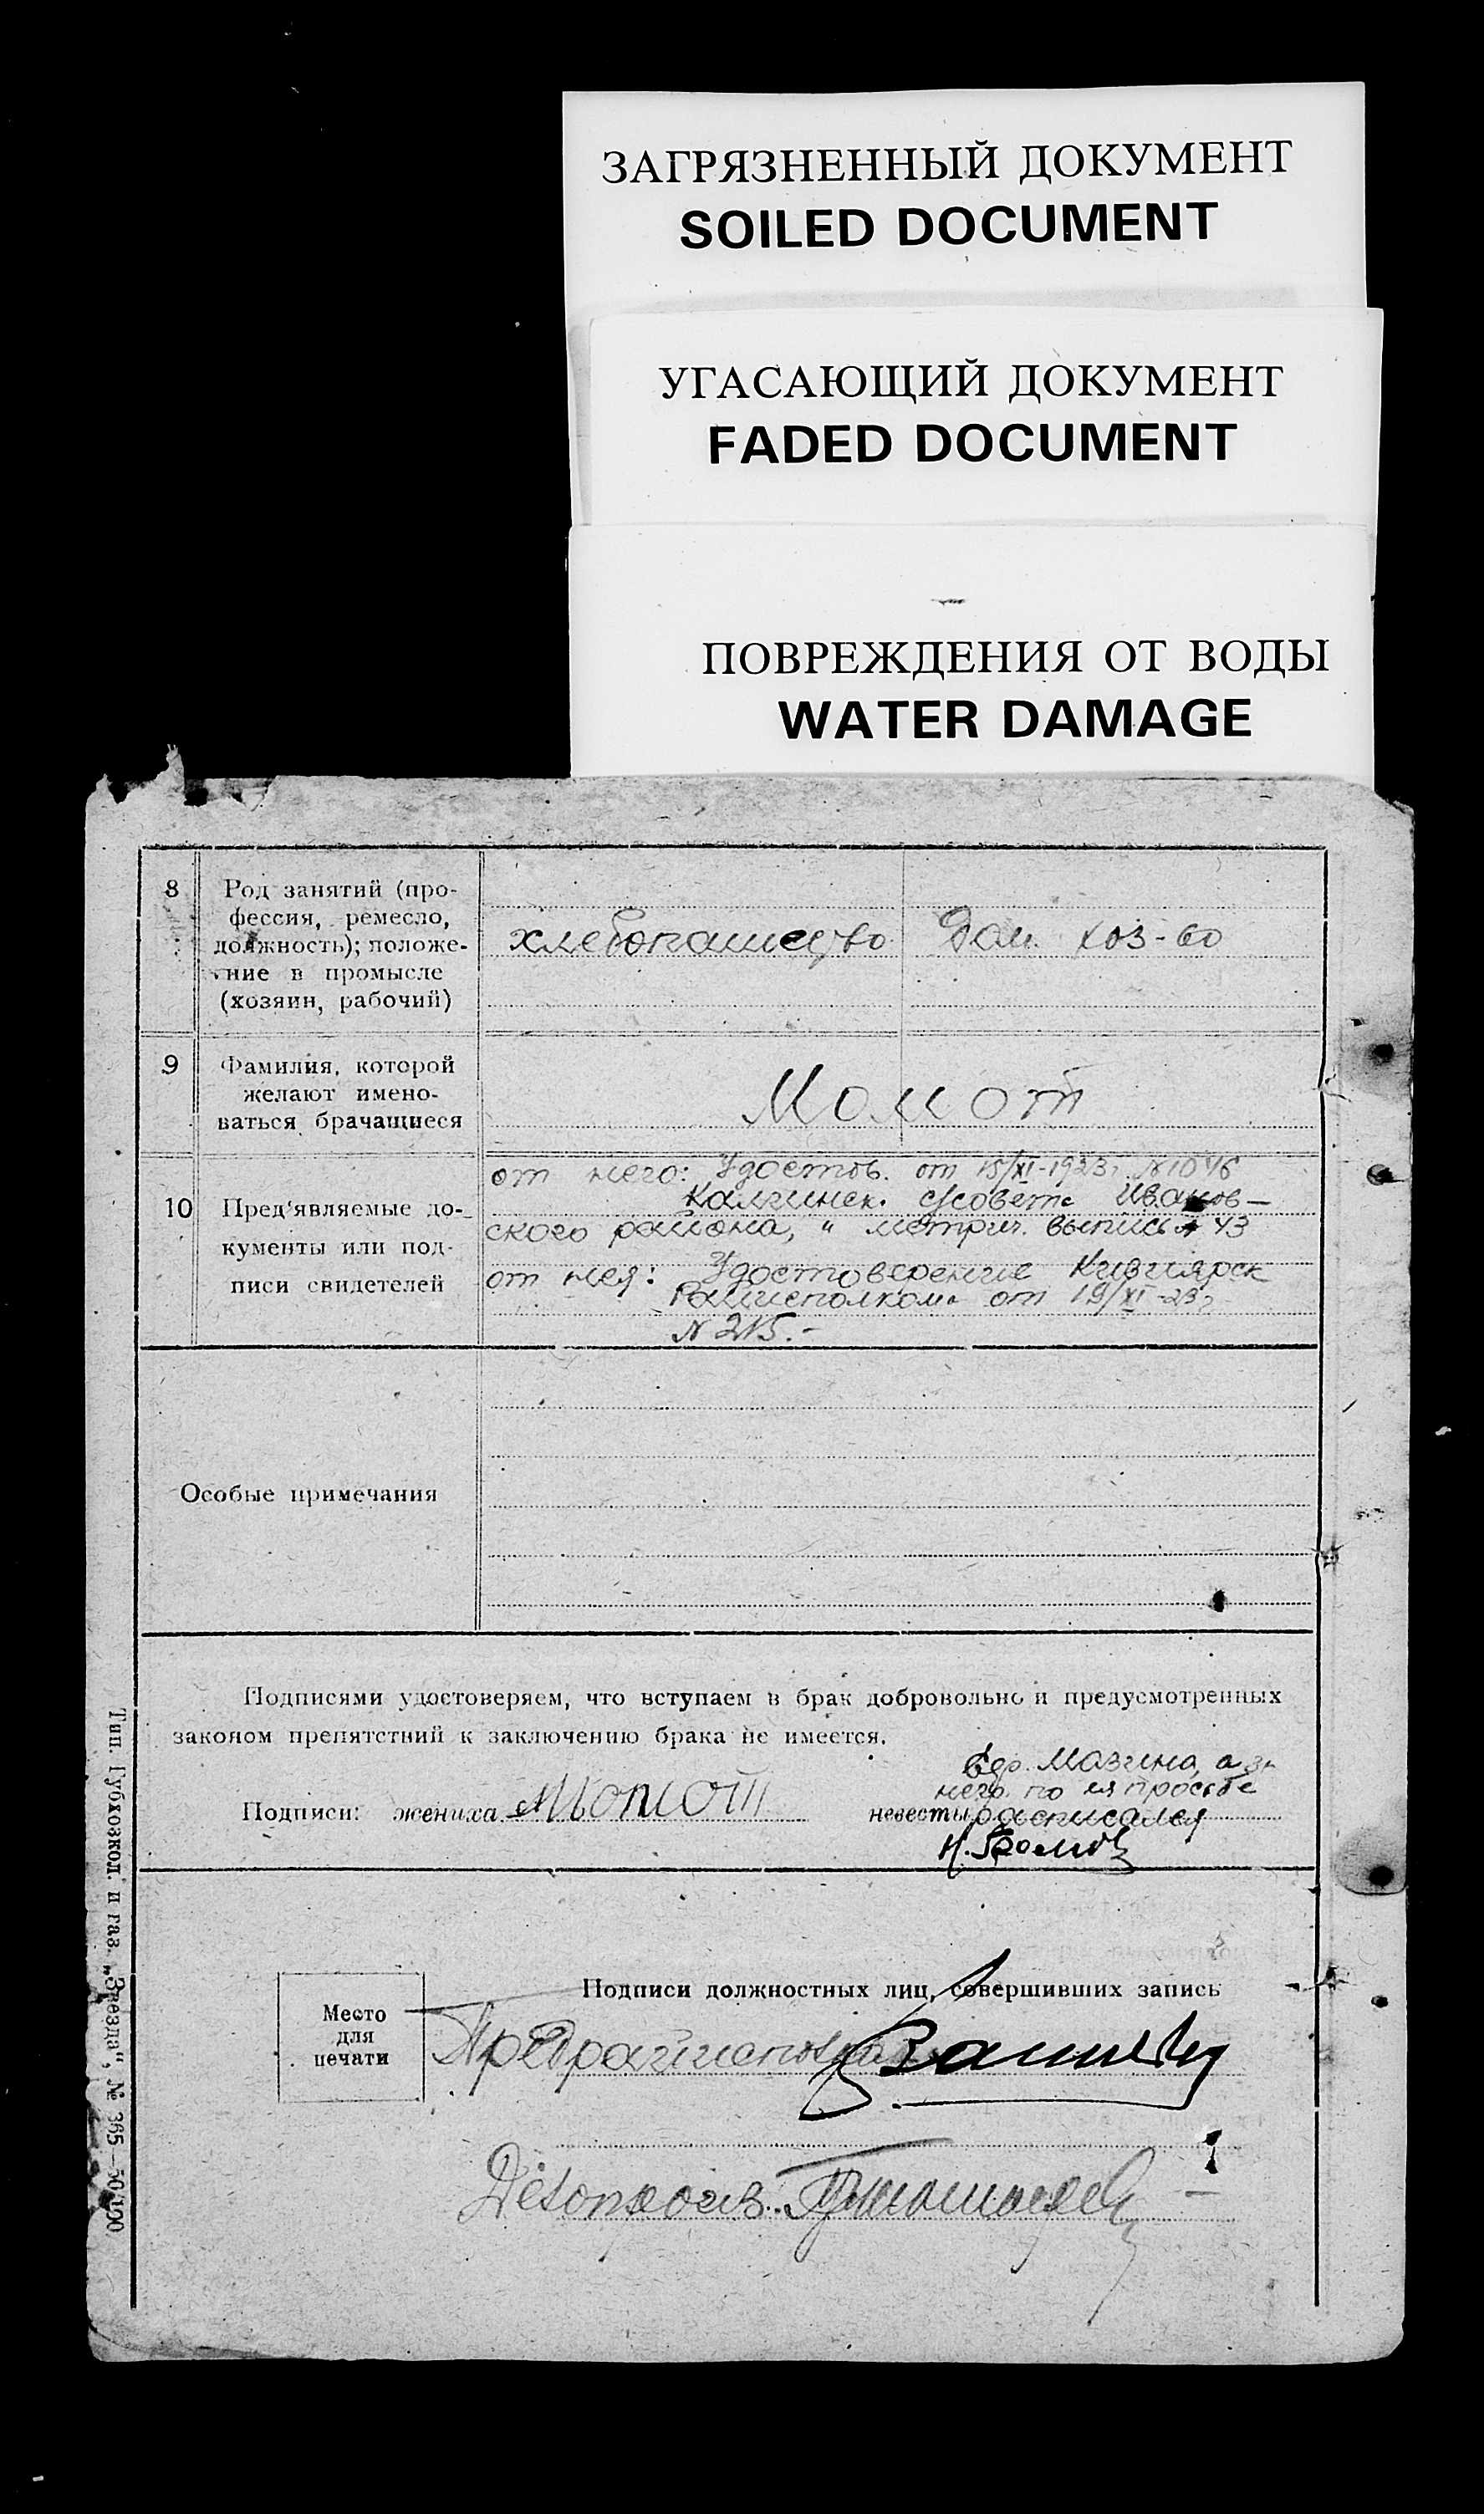 ЗАГРЯЗНЕННЫЙ ДОКУМЕНТ
SOILED DOCUMENT
УГАСАЮЩИЙ ДОКУМЕНТ
FADED DOCUMENT
ПОВРЕЖДЕНИЯ ОТ ВОДЫ
WATER DAMAGE
8
Род занятий (про-
фессия, ремесло,
должность); положе-
ние в промысле
(хозяин, рабочий)
хлебопашество
Дом. хоз-во
9
Фамилия, которой
желают имено-
ваться брачащиеся
Момот
10
Пред'являемые до-
кументы или под-
писи свидетелей
от него: Удостов. от 15/XI-1923г. № 1046
Калгинск. с/совета Иванов-
ского района, и метрич. выпись № 43
от нея: Удостоверение
Райисполкома от 19/XI-23г
№ 215.-
Особые примечания
Подписями удостоверяем, что вступаем в брак добровольно и предусмотренных
законом препятствий к заключению брака не имеется.
Подписи: жениха Момот
невесты
Мазина, а за
него по ея просьбе
расписался
Подписи должностных лиц, совершивших запись
Место
для
печати
Предрайисполкома
Делопроизв.
Тип. Губхозкол. и газ. „Звезда“, № 365—50/100